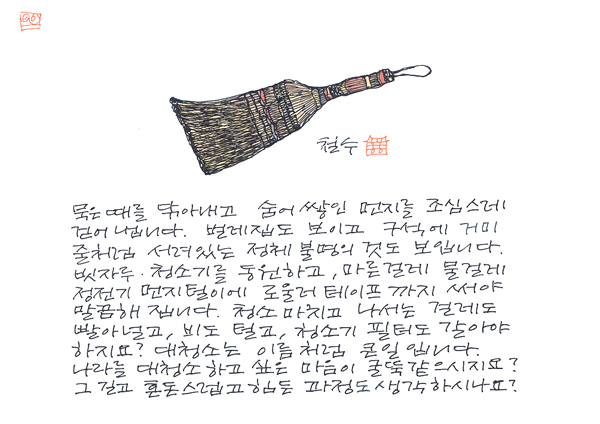 철수
묵은때를 닦아내고 숨어 쌓인 먼지를 조심스레
걷어 냅니다. 벌레집도 보이고 구석에 거미
줄처럼 서려있는 정체불명의 것도 보입니다.
빗자루·청소기를 동원하고, 마른걸레 물걸레
정전기 먼지털이에 로울러 테이프까지 써야
말끔해 집니다. 청소 마치고 나서는 걸레도
빨아널고, 비도 털고, 청소기 필터도 갈아야
하지요? 대청소는 이름처럼 큰일입니다.
나라를 대청소하고 싶은 마음이 굴뚝같으시지요?
그 길고 혼돈스럽고 힘든 과정도 생각하시나요?